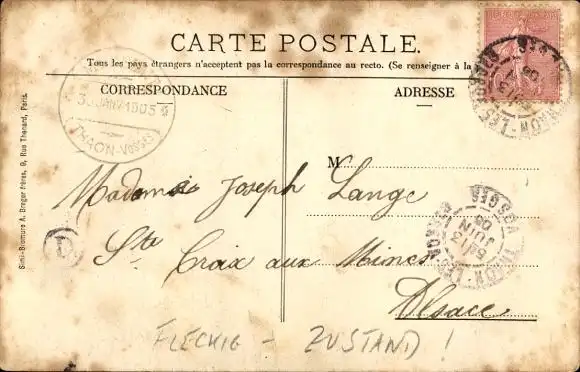 CARTE POSTALE.
Tous les pays étrangers n'acceptent pas la correspondance au recto. (Se renseigner à la
CORRESPONDANCE
ADRESSE
THAON-VOSGES
M
Madame Joseph Lange
Ste Croix aux Mines
Alsace
VOSGES
JUIN
Simili-Bromure A. Breger frères, 9, Rue Thénard, Paris.
FLECKIG - ZUSTAND !